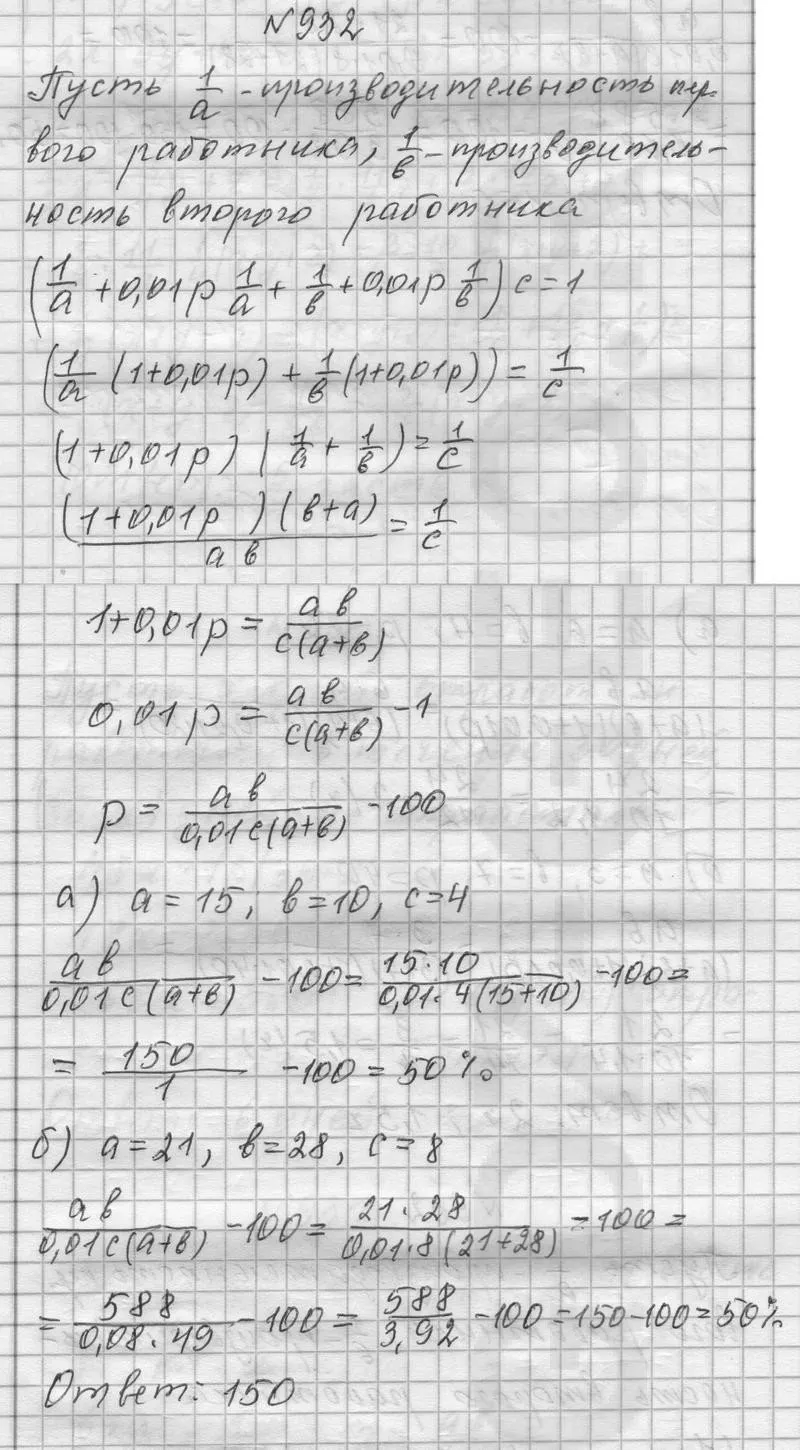 №932
Пусть 1/a - производительность пер-
вого работника, 1/в - производитель-
ность второго работника
(1/a + 0,01p 1/a + 1/в + 0,01p 1/в) c = 1
(1/a (1+0,01p) + 1/в (1+0,01p)) = 1/c
(1+0,01p) (1/a + 1/в) = 1/c
(1+0,01p)(в+a)/aв = 1/c
1+0,01p = aв/c(a+в)
0,01p = aв/c(a+в) - 1
p = aв/0,01c(a+в) - 100
а) a = 15, в = 10, c = 4
aв/0,01c(a+в) - 100 = 15·10/0,01·4(15+10) - 100 =
= 150/1 - 100 = 50%
б) a = 21, в = 28, c = 8
aв/0,01c(a+в) - 100 = 21·28/0,01·8(21+28) - 100 =
= 588/0,08·49 - 100 = 588/3,92 - 100 = 150 - 100 = 50%
Ответ: 150